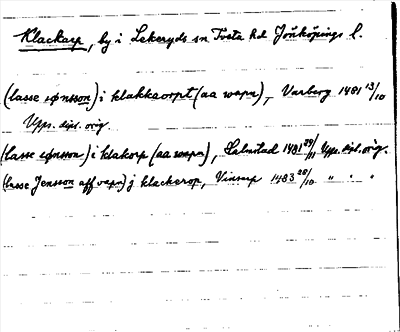 Klackarp, by i Lekeryds sn Tveta hd Jönköpings l.
(lasse iønsson) i klakkaorpt (aa wapn), Varberg 1481 13/10
Upps. dipl. orig.
(lasse iønsson) i klakorp (aa wapn), Halmstad 1481 29/11 Upps. dipl. orig.
(lasse Jensson aff vapn) j klackerop, 1483 28/10 " " "